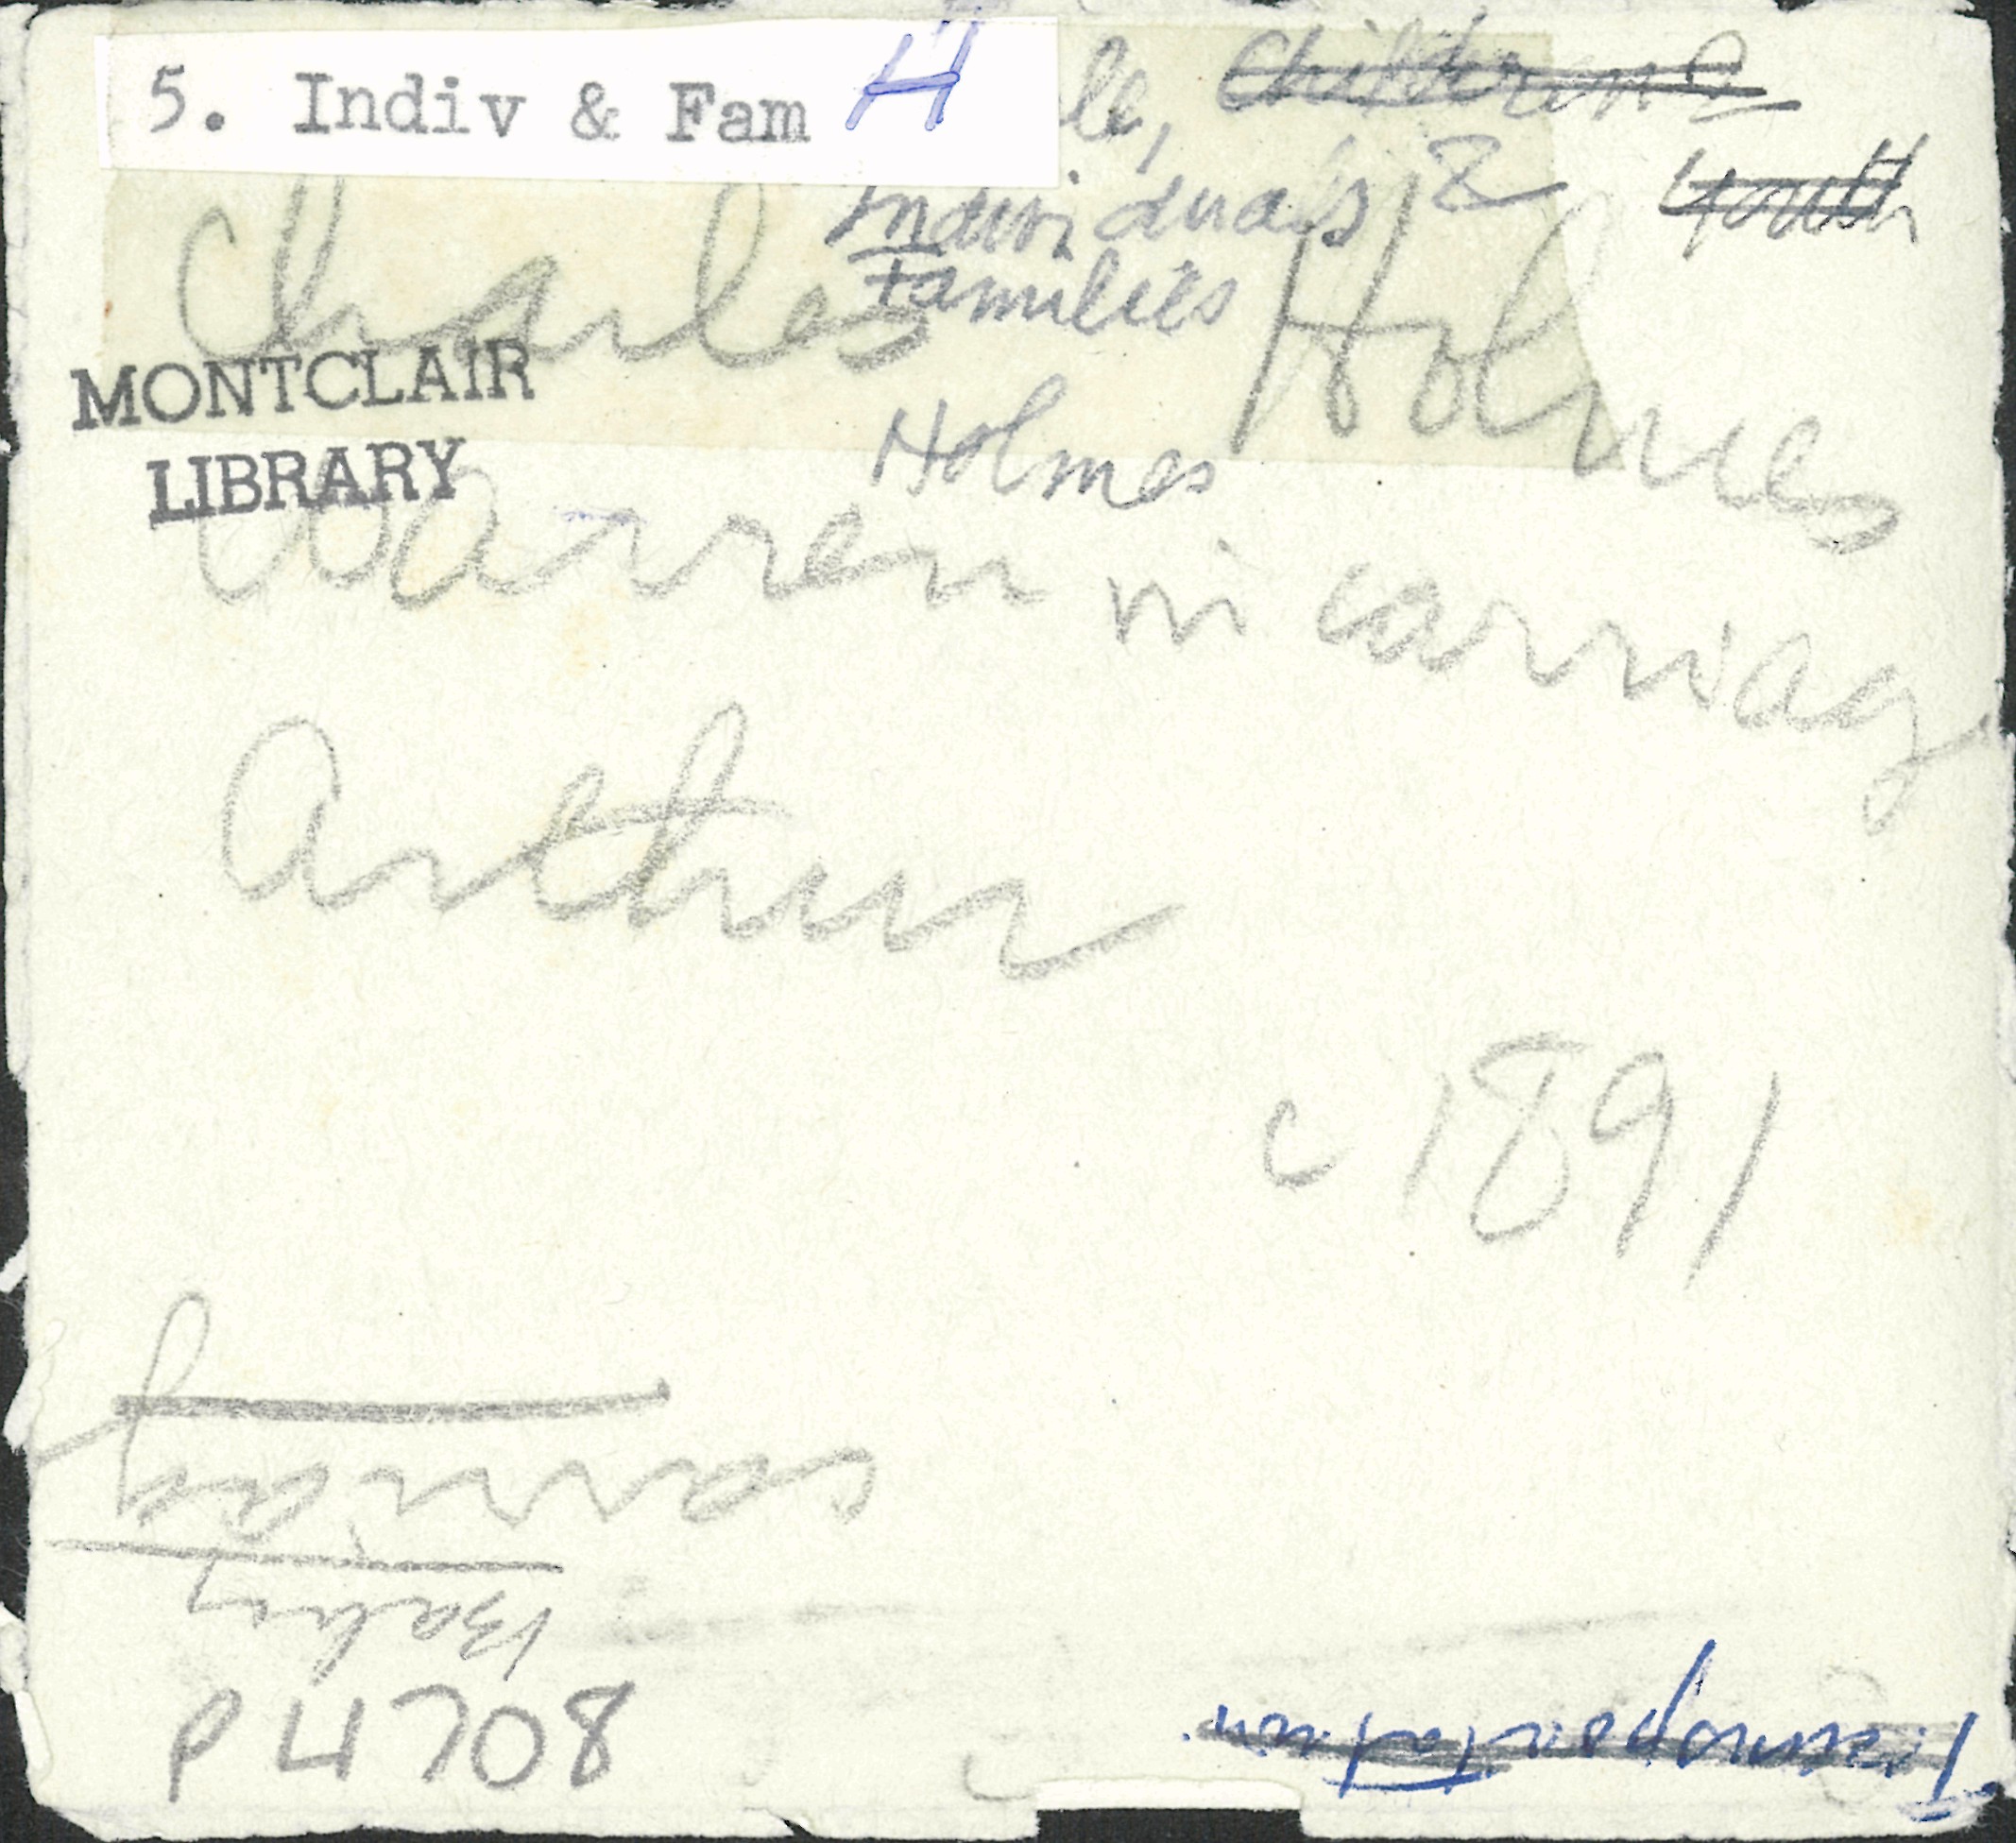 5. Indiv & Fam H
le, Children &
Youth
Individuals &
Families
Charles Holmes
MONTCLAIR
LIBRARY
Holmes
Warren in carriage
Arthur
c 1891
carriage
Baby
P4708
Transportation